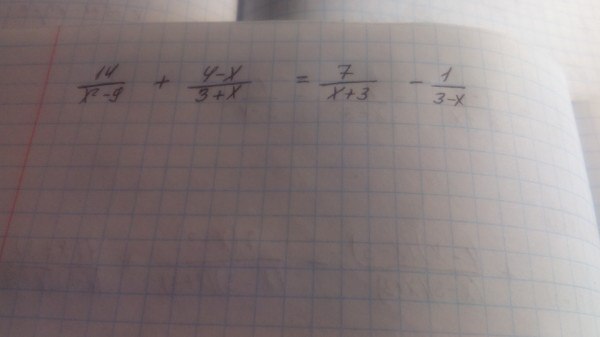 14/(x²-9) + (4-x)/(3+x) = 7/(x+3) - 1/(3-x)